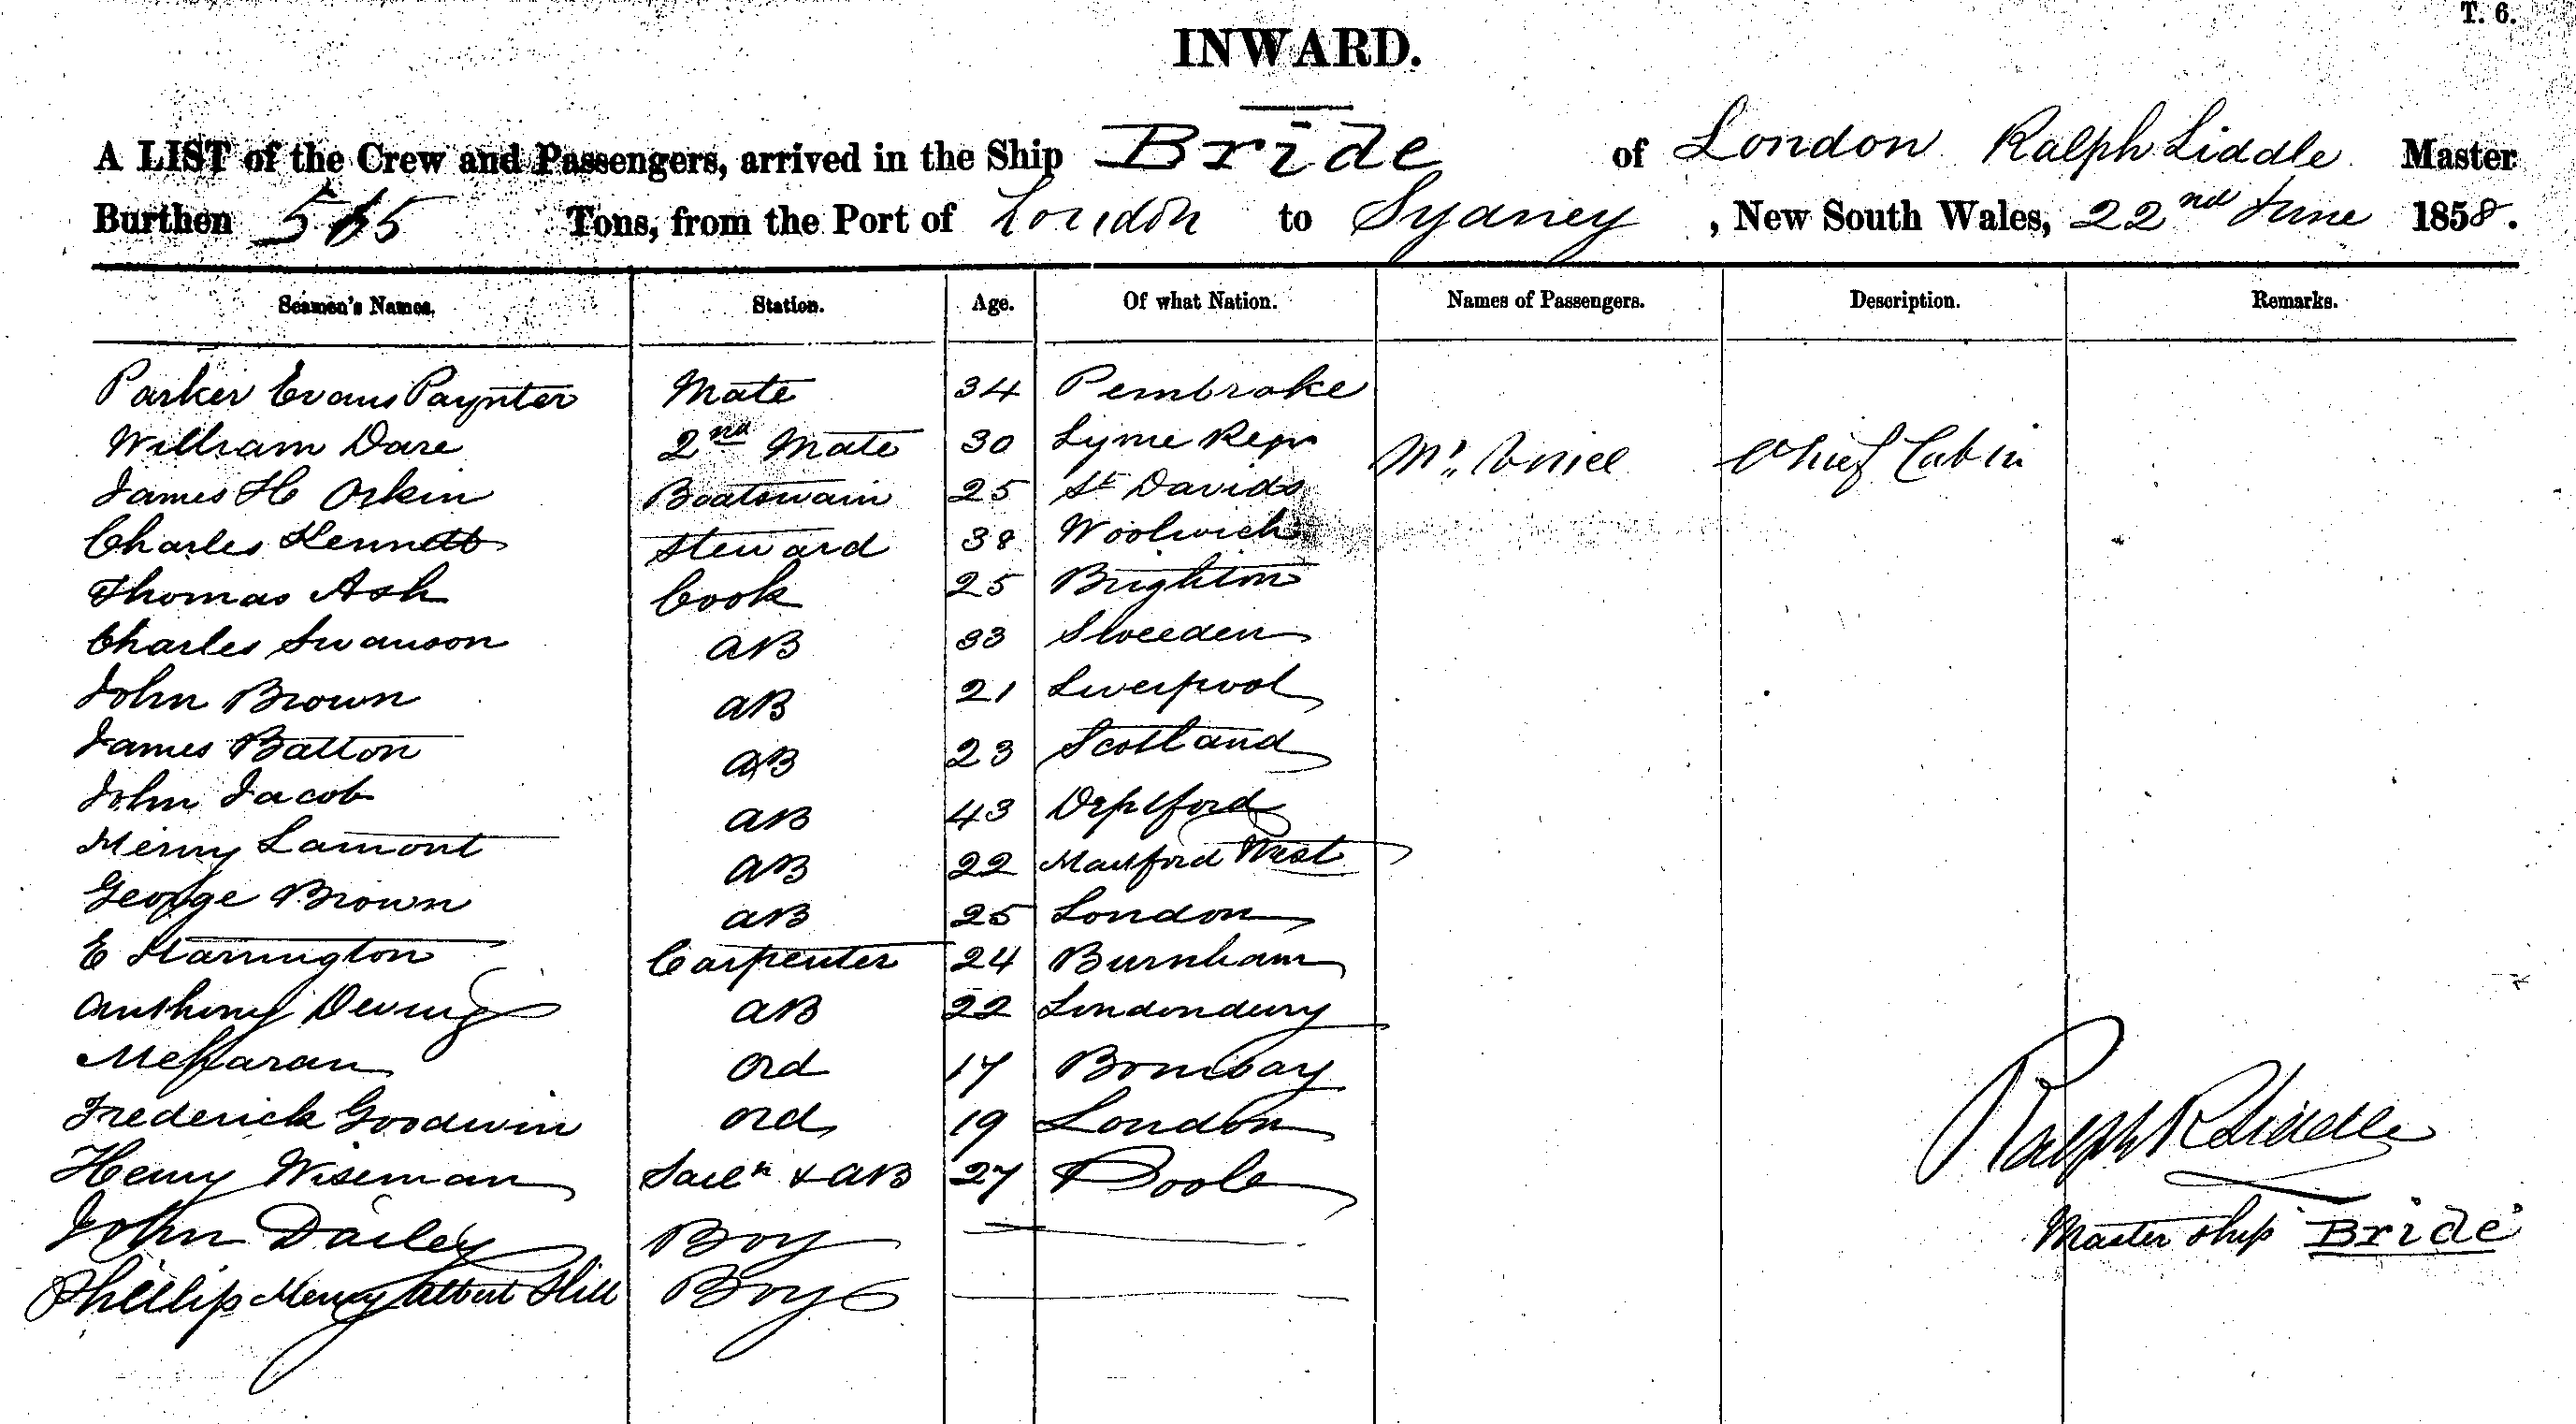 T. 6.
INWARD.
A LIST of the Crew and Passengers, arrived in the Ship Bride of London Ralph Liddle Master
Burthen 565 Tons, from the Port of London to Sydney, New South Wales, 22nd June 1858.
Seamen's Names. Station. Age. Of what Nation. Names of Passengers. Description. Remarks.
Parker Evans Paynter Mate 34 Pembroke
William Dare 2nd Mate 30 Lyme Regis
Mr. Chief Cabin
James H Orkin Boatswain 25 St Davids
Charles Kennett Steward 38 Woolwich
Thomas Ash Cook 25 Brighton
Charles Swanson AB 33 Sweeden
John Brown AB 21 Liverpool
James Batton AB 23 Scotland
John Jacob AB 43 Deptford
Henry Lamont AB 22 Hartford West
George Brown AB 25 London
E Harrington Carpenter 24 Burnham
Anthony AB 22 Londonderry
Ord 17 Bombay
Frederick Goodwin Ord 19 London
Henry Wiseman Sailr & AB 27 Poole
John Dailey Boy
Phillip Henry Albert Hill Boy
Ralph R Liddle
Master Ship "Bride"